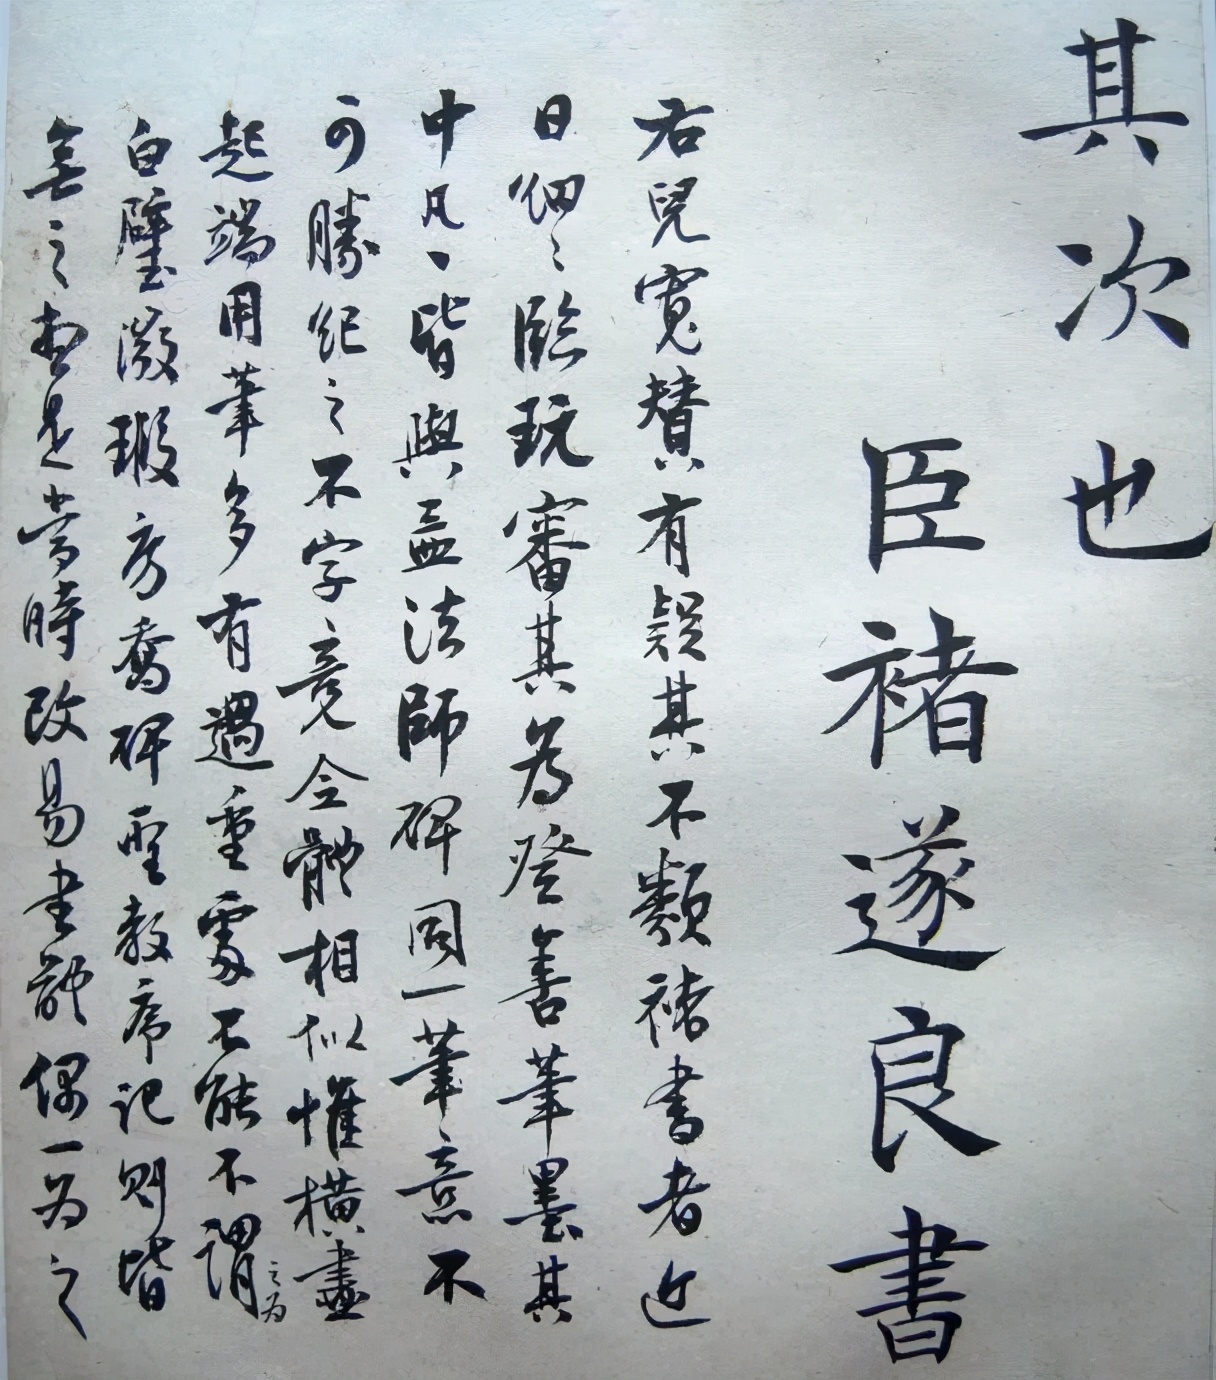 其次也
臣褚遂良書
右兒寬贊有疑其不類褚書者近
日細〻臨玩審其為登善筆墨其
中凡丶皆與孟法師碑同一筆意不
可勝紀之不字竟全體相似惟橫畫
起端用筆多有過重處不能不謂之为
白璧微瑕房喬碑聖教序記則皆
無之想是當時改易書體偶一为之